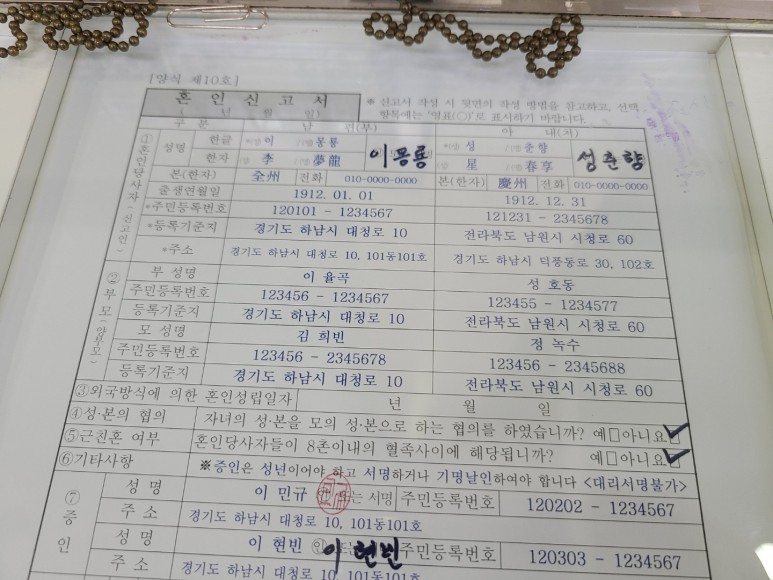 [양식 제10호]
혼 인 신 고 서
년 월 일)
※ 신고서 작성 시 뒷면의 작성 방법을 참고하고, 선택
항목에는 '영표(○)'로 표시하기 바랍니다.
구 분 남 편(부) 아 내(처)
①혼인당사자(신고인)
성명 한글 이 몽룡 이몽룡 성 춘향 성춘향
한자 李 夢龍 星 春享
본(한자) 全州 전화 010-0000-0000 본(한자) 慶州 전화 010-0000-0000
출생연월일 1912. 01. 01 1912. 12. 31
*주민등록번호 120101 - 1234567 121231 - 2345678
*등록기준지 경기도 하남시 대청로 10 전라북도 남원시 시청로 60
*주소 경기도 하남시 대청로 10, 101동101호 경기도 하남시 덕풍동로 30, 102호
②부모(양부모)
부 성명 이 율곡 성 호동
주민등록번호 123456 - 1234567 123455 - 1234577
등록기준지 경기도 하남시 대청로 10 전라북도 남원시 시청로 60
모 성명 김 희빈 정 녹수
주민등록번호 123456 - 2345678 123456 - 2345688
등록기준지 경기도 하남시 대청로 10 전라북도 남원시 시청로 60
③외국방식에 의한 혼인성립일자 년 월 일
④성·본의 협의 자녀의 성·본을 모의 성·본으로 하는 협의를 하였습니까? 예□아니요☑
⑤근친혼 여부 혼인당사자들이 8촌이내의 혈족사이에 해당됩니까? 예□아니요☑
⑥기타사항 ※증인은 성년이어야 하고 서명하거나 기명날인하여야 합니다 <대리서명불가>
⑦증인
성 명 이 민규 는 서명 주민등록번호 120202 - 1234567
주 소 경기도 하남시 대청로 10, 101동101호
성 명 이 현빈 ㊞ 이현빈 주민등록번호 120303 - 1234567
주 소 경기도 하남시 대청로 10, 101동101호